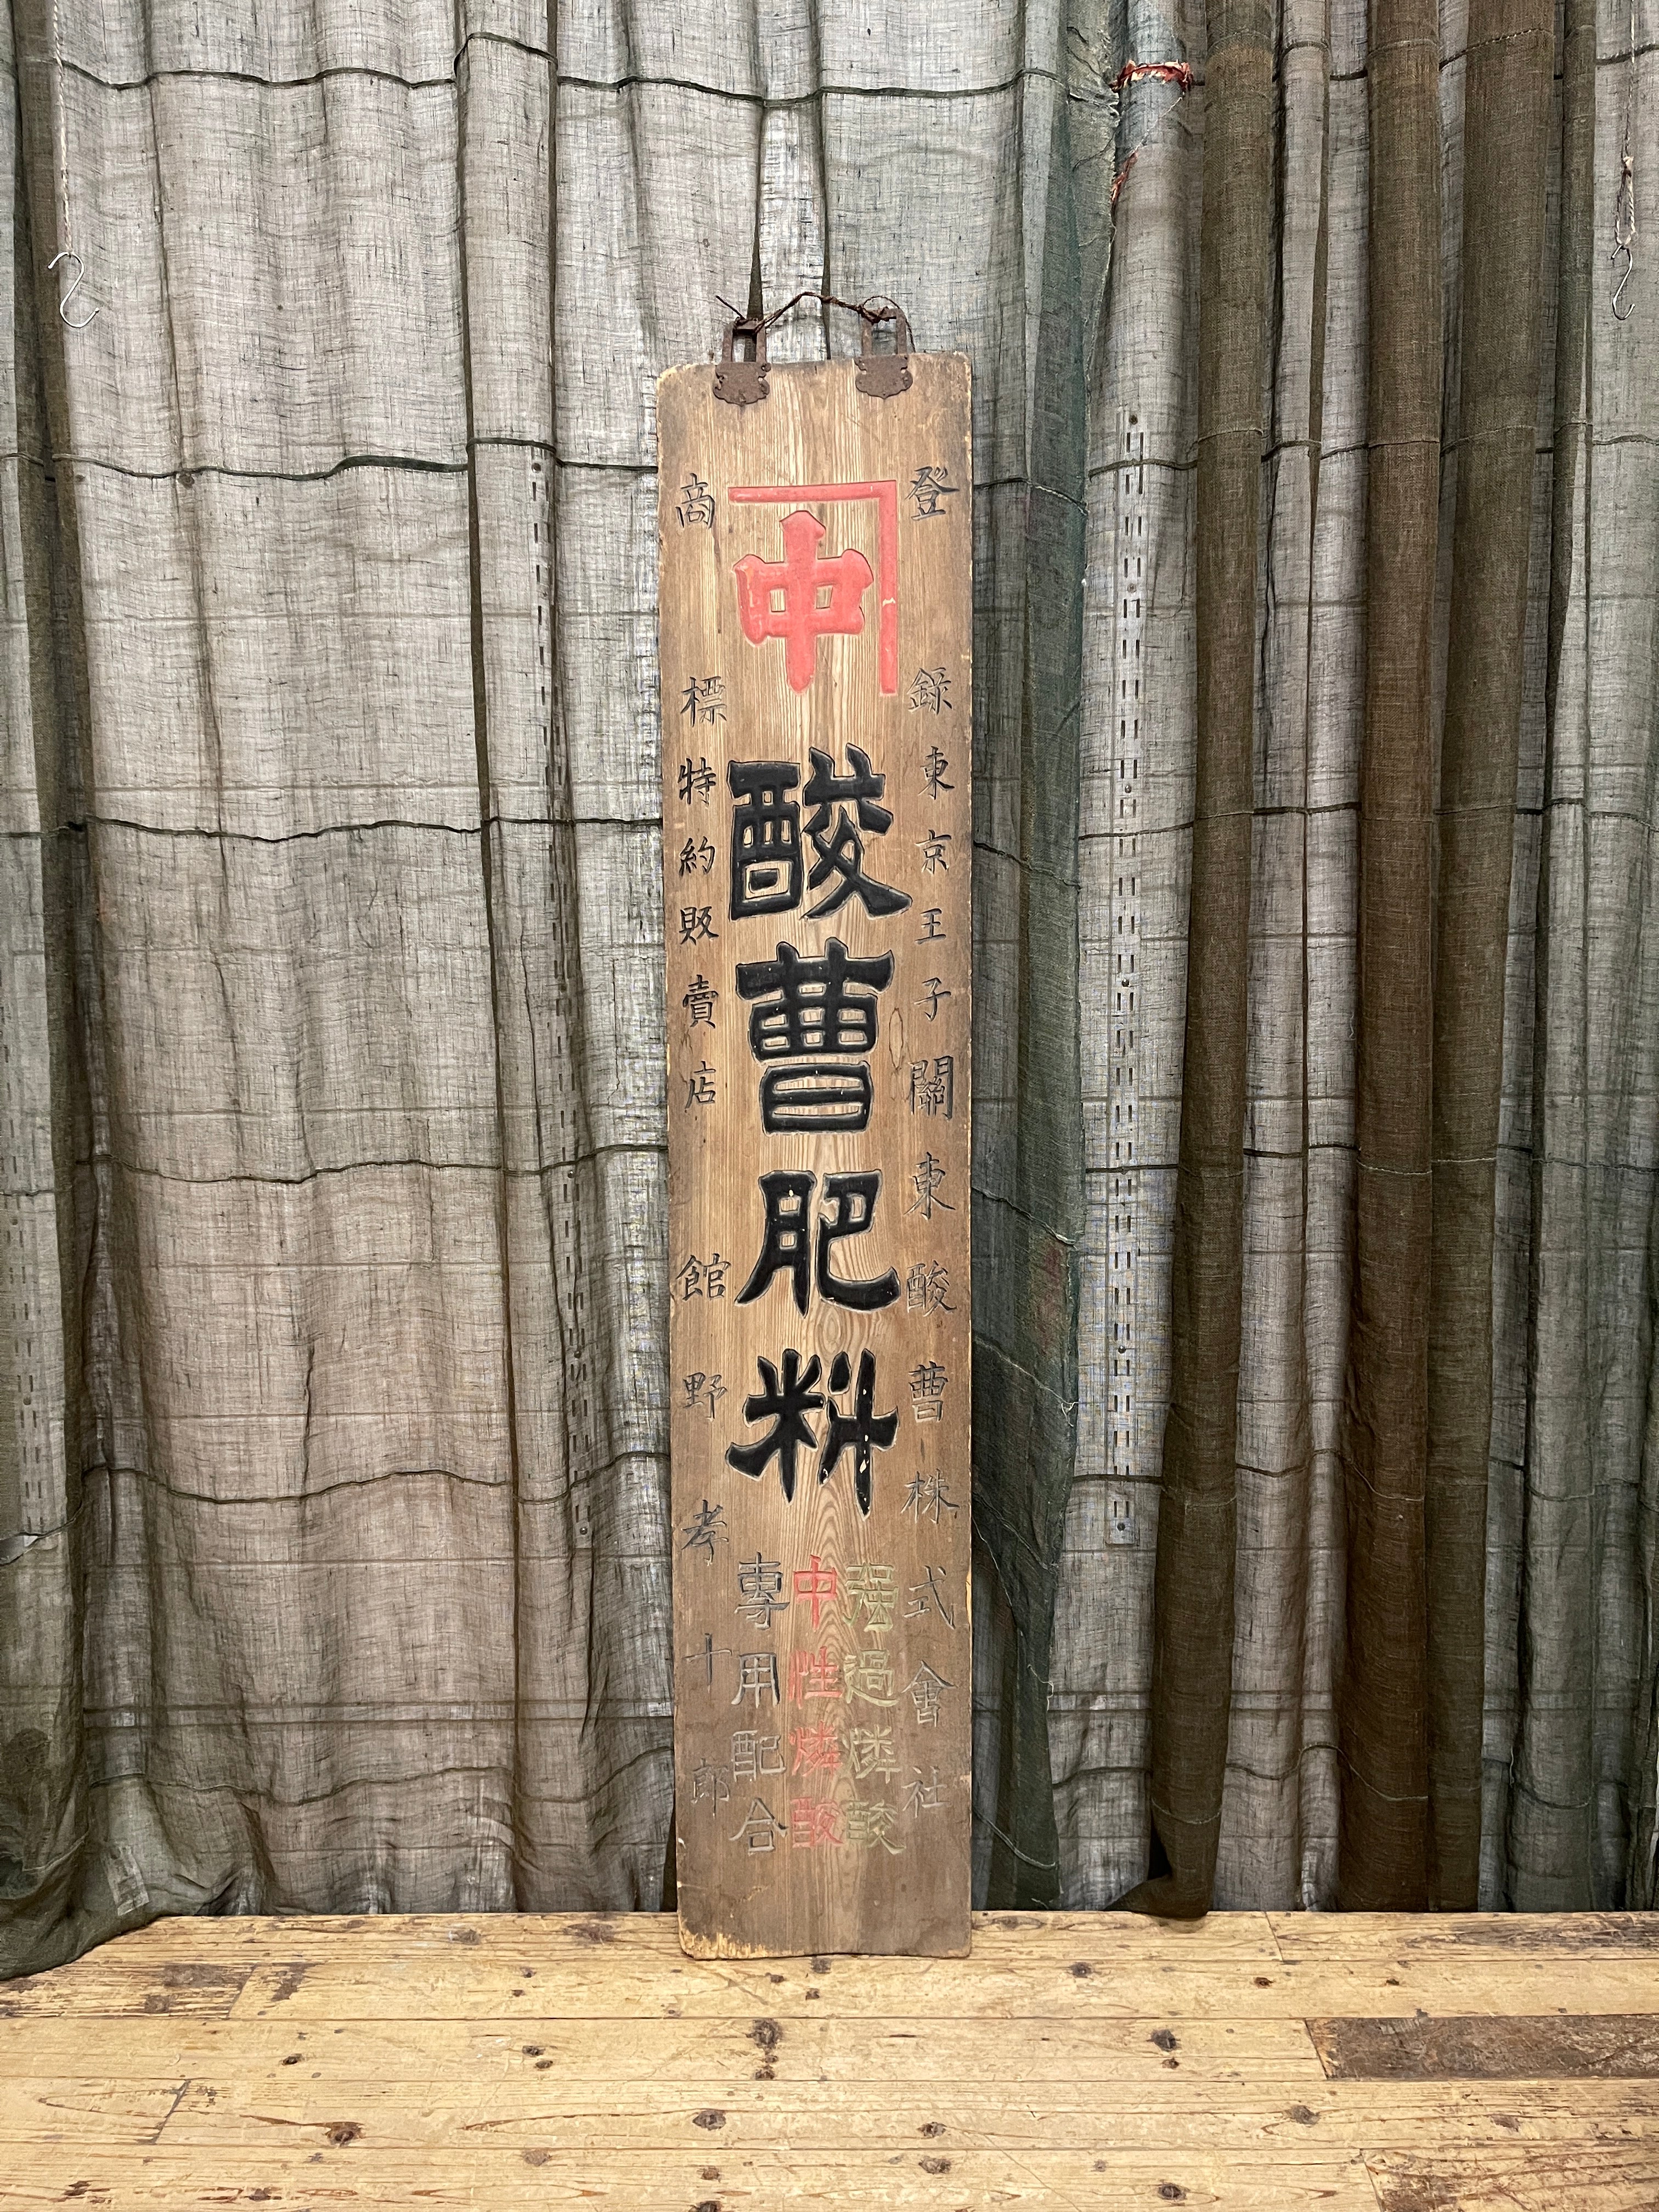 登錄 東京王子關東酸曹株式會社
中
酸曹肥料
强過燐酸
中性燐酸
專用配合
商標 特約販賣店 館野孝十郎